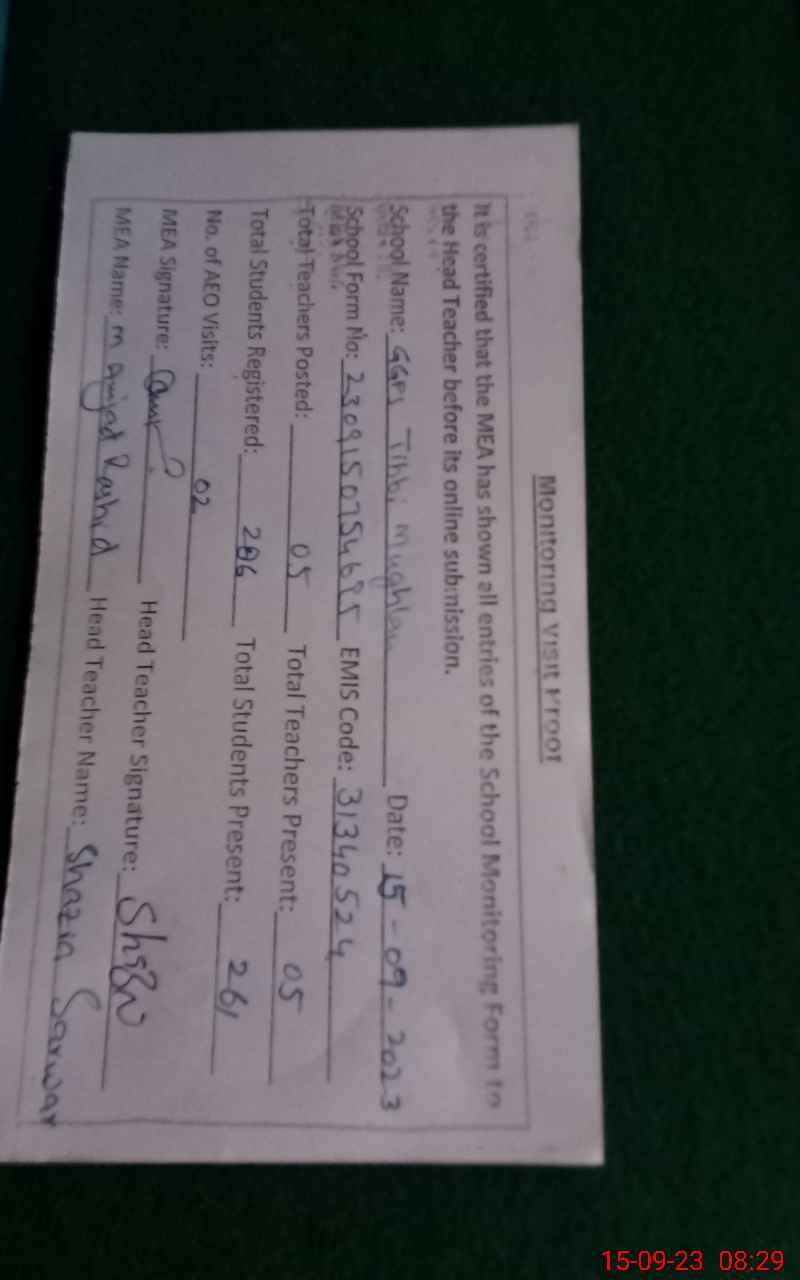 Monitoring Visit Proof
It is certified that the MEA has shown all entries of the School Monitoring Form to
the Head Teacher before its online submission.
School Name: GGPS Tibbi Mughlan Date: 15-09-2023
School Form No: 2309150754685 EMIS Code: 31340524
Total Teachers Posted: 05 Total Teachers Present: 05
Total Students Registered: 286 Total Students Present: 261
No. of AEO Visits: 02
MEA Signature: Head Teacher Signature:
MEA Name: M Amjad Rashid Head Teacher Name: Shazia Sarwar
15-09-23 08:29